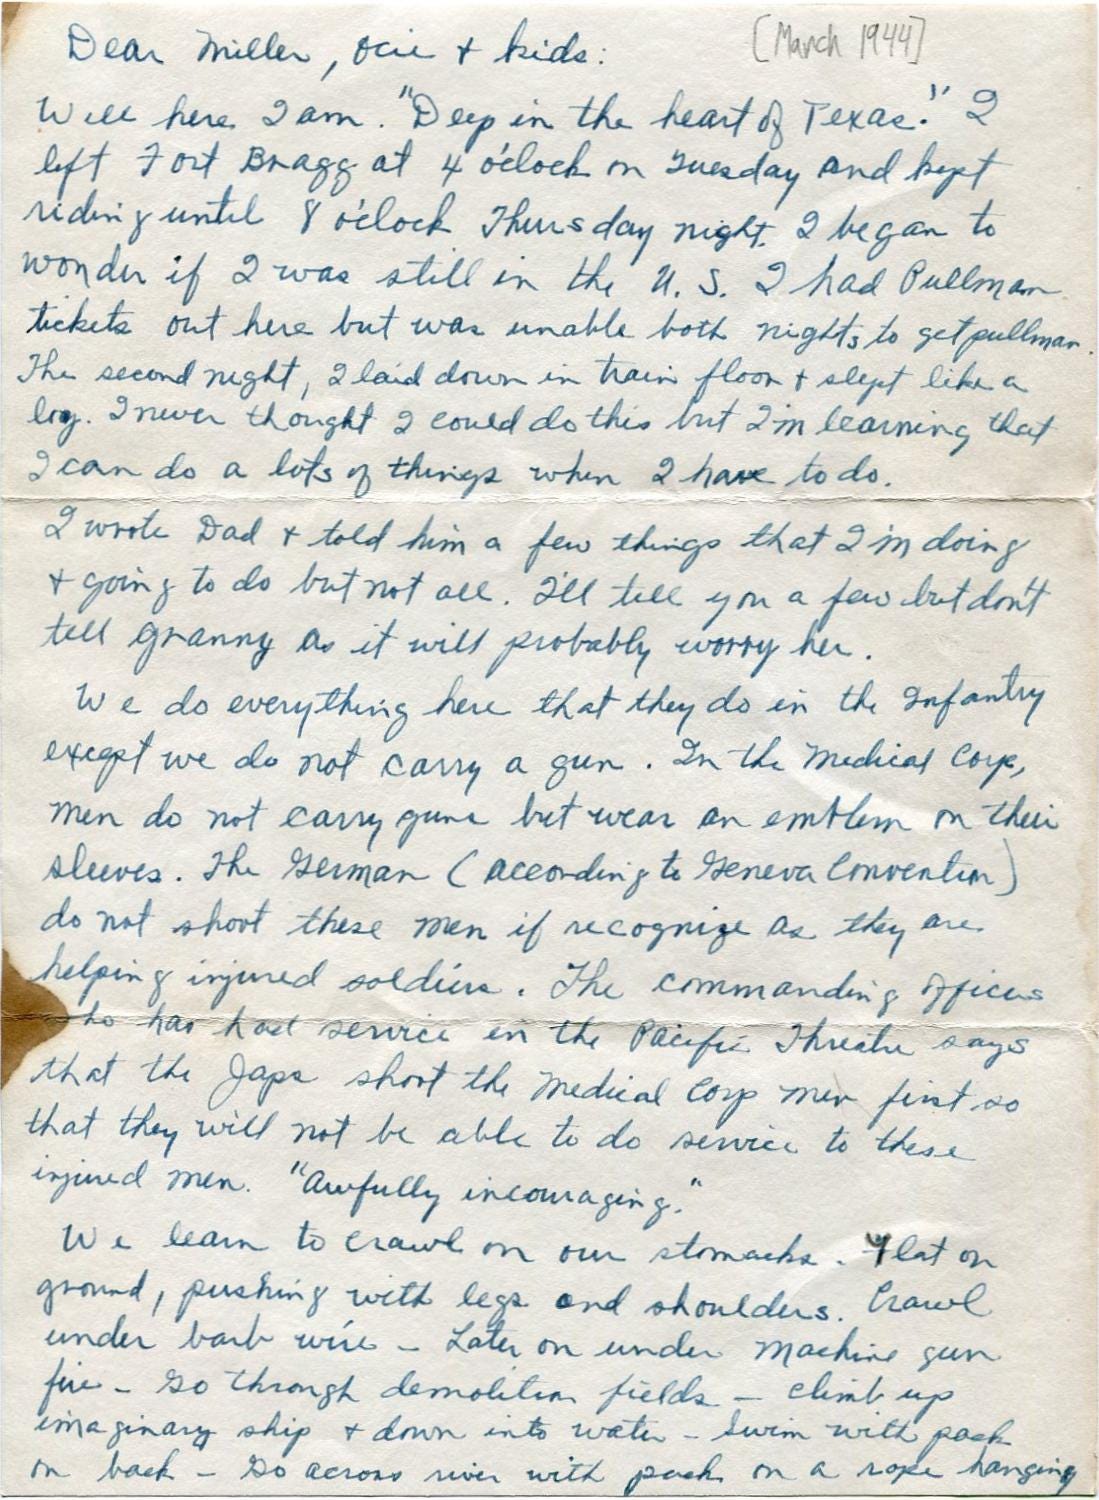 [March 1944]
Dear Miller, Ocie + kids:
Well here I am. "Deep in the heart of Texas." I
left Fort Bragg at 4 o'clock on Tuesday and kept
riding until 8 o'clock Thursday night. I began to
wonder if I was still in the U. S. I had Pullman
tickets out here but was unable both nights to get pullman.
The second night, I laid down in train floor + slept like a
log. I never thought I could do this but I'm learning that
I can do a lots of things when I have to do.
I wrote Dad + told him a few things that I'm doing
+ going to do but not all. I'll tell you a few but don't
tell Granny as it will probably worry her.
We do everything here that they do in the Infantry
except we do not carry a gun. In the Medical Corp,
men do not carry guns but wear an emblem on their
sleeves. The German (according to Geneva Convention)
do not shoot these men if recognize as they are
helping injured soldiers. The commanding officer
who has had service in the Pacific Threatre says
that the Japs shoot the Medical Corp men first so
that they will not be able to do service to these
injured men. "Awfully incouraging."
We learn to crawl on our stomacks. Flat on
ground, pushing with legs and shoulders. Crawl
under barb wire - Later on under machine gun
fire - Go through demolition fields - climb up
imaginary ship + down into water - Swim with pack
on back - Go across river with pack on a rope hanging